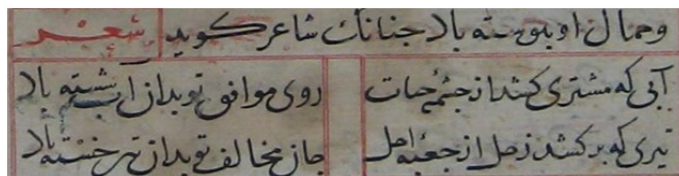 وصال او پیوسته باد چنانک شاعر گوید شعر
آبی که مشتری کشد از چشمهٔ حیات روی موافق تو بدان آب شسته باد
تیری که برکشد زحل از جعبهٔ اجل جان مخالف تو بدان تیر خسته باد